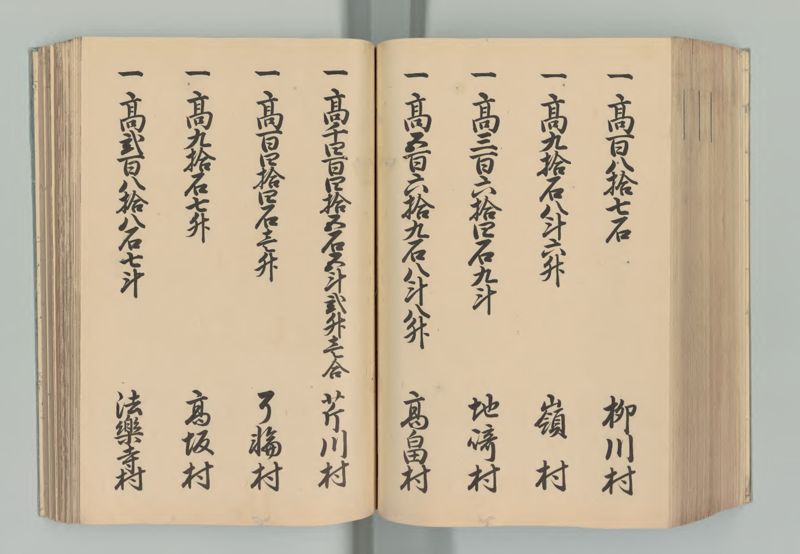 一高百八拾七石 柳川村
一高九拾石八斗六升 嶺村
一高三百六拾四石九斗 地崎村
一高五百六拾九石八斗八升 高畠村
一高千四百四拾五石五斗弐升壱合 芹川村
一高百四拾四石壱升 村
一高九拾石七升 高坂村
一高弐百八拾八石七斗 法樂寺村